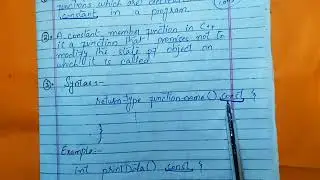 functions which are declared
constant in a program
(2)- A constant member function in C++
is a function that promises not to
modify the state of object on
which it is called
(3)- Syntax:-
Return-type function-name() const {
}
Example:-
int printData() const {